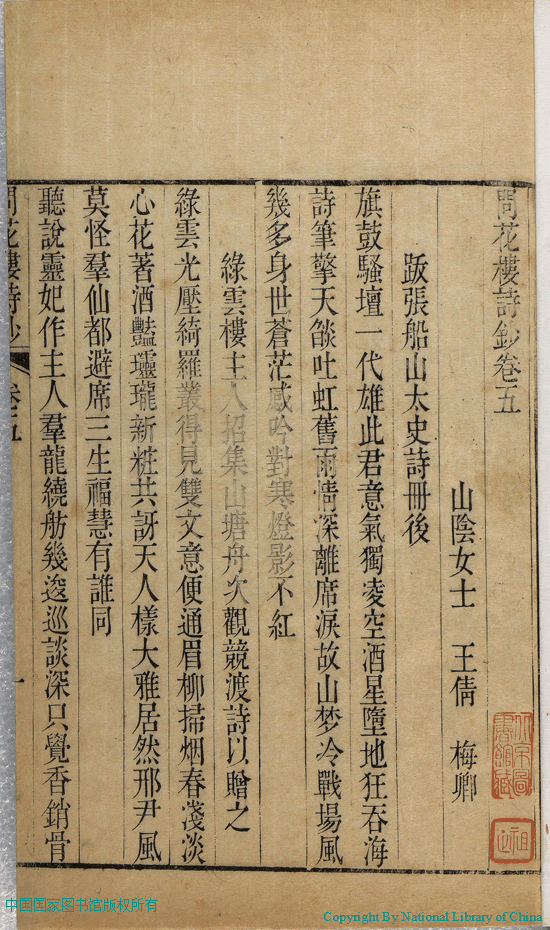 問花樓詩鈔卷五
山陰女士　王倩　梅卿
跋張船山太史詩冊後
旗鼓騷壇一代雄此君意氣獨凌空酒星墮地狂吞海
詩筆擎天燄吐虹舊雨情深離席淚故山梦冷戰場風
幾多身世蒼茫感吟對寒燈影不紅
綠雲樓主人招集山塘舟次觀競渡詩以贈之
綠雲光壓綺羅叢得見雙文意便通眉柳掃烟春淺淡
心花著酒豔瓏瓏新粧共訝天人樣大雅居然邢尹風
莫怪羣仙都避席三生福慧有誰同
聽說靈妃作主人羣龍繞舫幾逡巡談深只覺香銷骨
問花樓詩鈔　卷五　一
北京圖書館藏
中国国家图书馆版权所有
Copyright By National Library of China